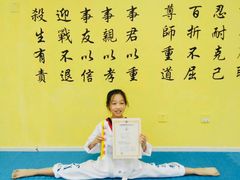 忍耐克己
百折不屈
尊師重道
事君以忠
事親以孝
事友以信
迎戰不退
殺生有責